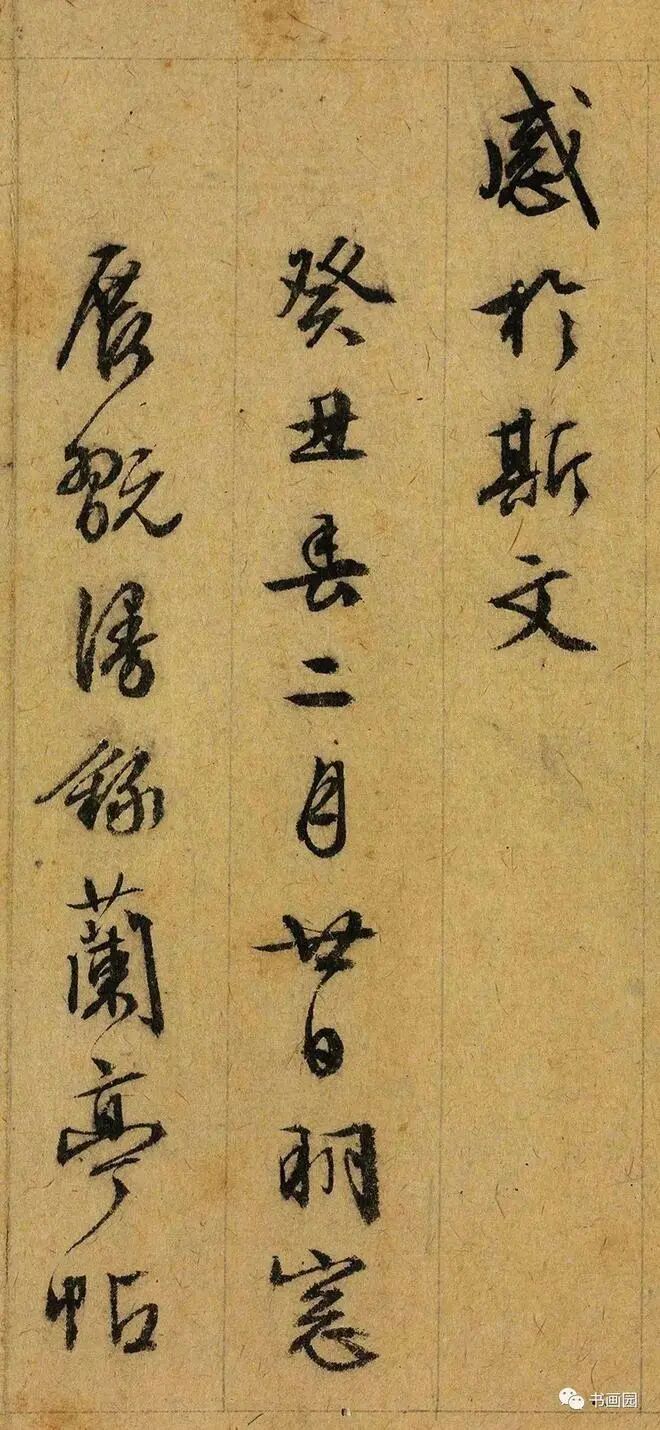 感於斯文
癸丑春二月廿日明窓
展翫漫錄蘭亭帖
书画园